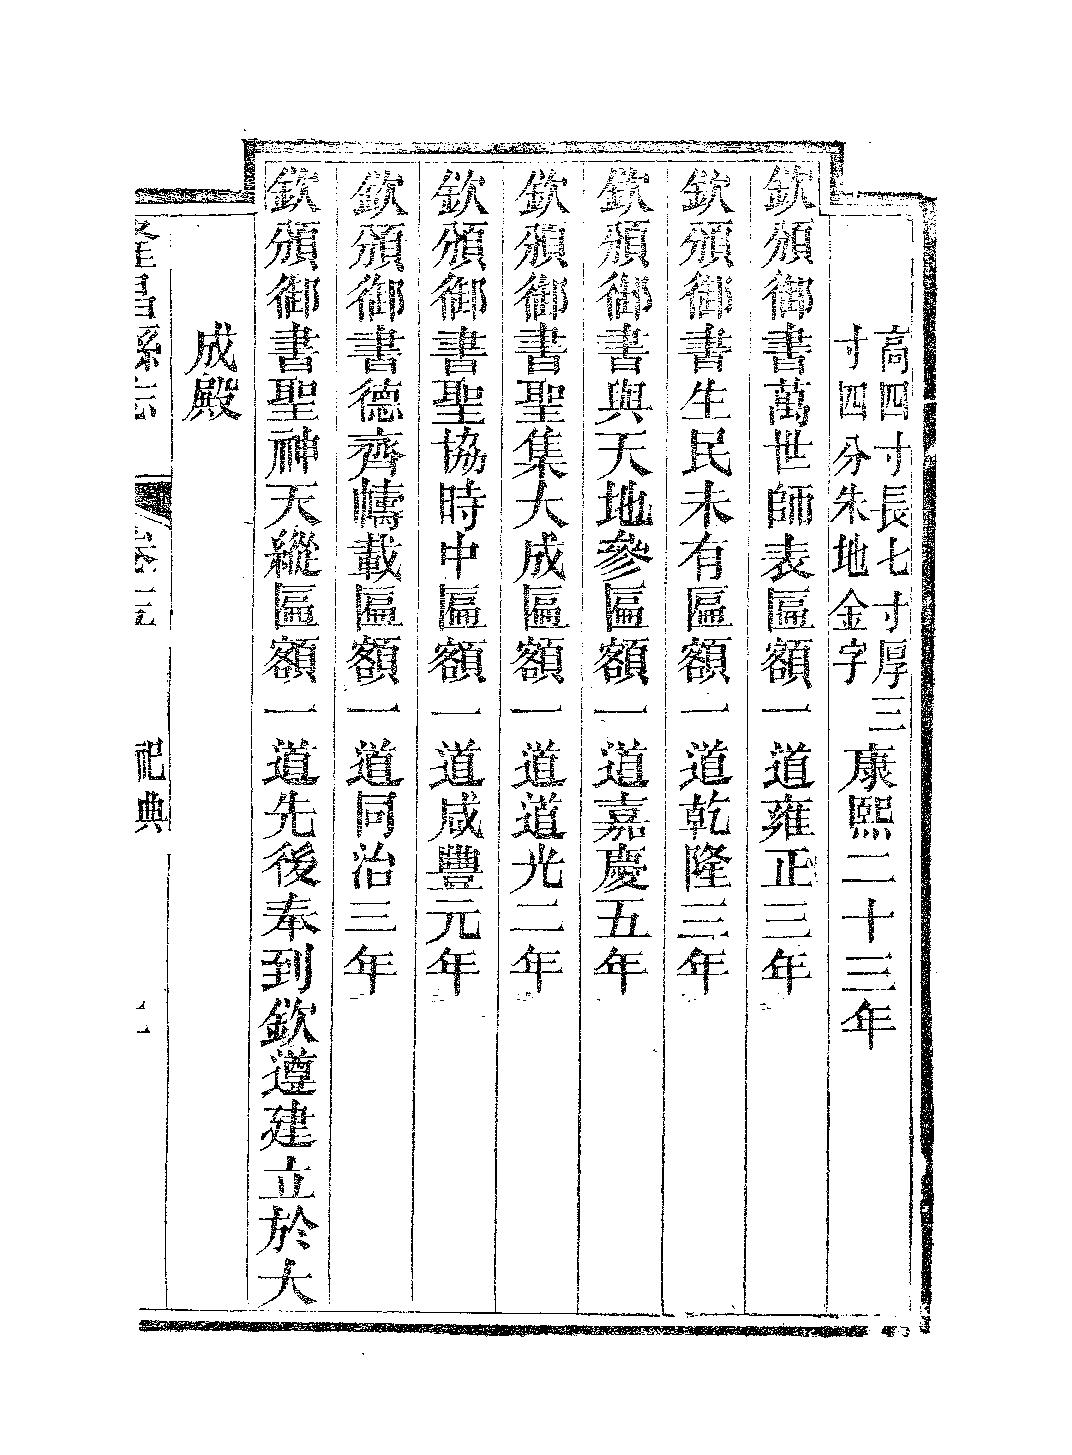 高四寸長七寸厚三
寸四分朱地金字
康熙二十三年
欽頒御書萬世師表匾額一道雍正三年
欽頒御書生民未有匾額一道乾隆三年
欽頒御書與天地參匾額一道嘉慶五年
欽頒御書聖集大成匾額一道道光二年
欽頒御書聖協時中匾額一道咸豐元年
欽頒御書德齊幬載匾額一道同治三年
欽頒御書聖神天縱匾額一道先後奉到欽遵建立於大
成殿
隆昌縣志 卷 祀典